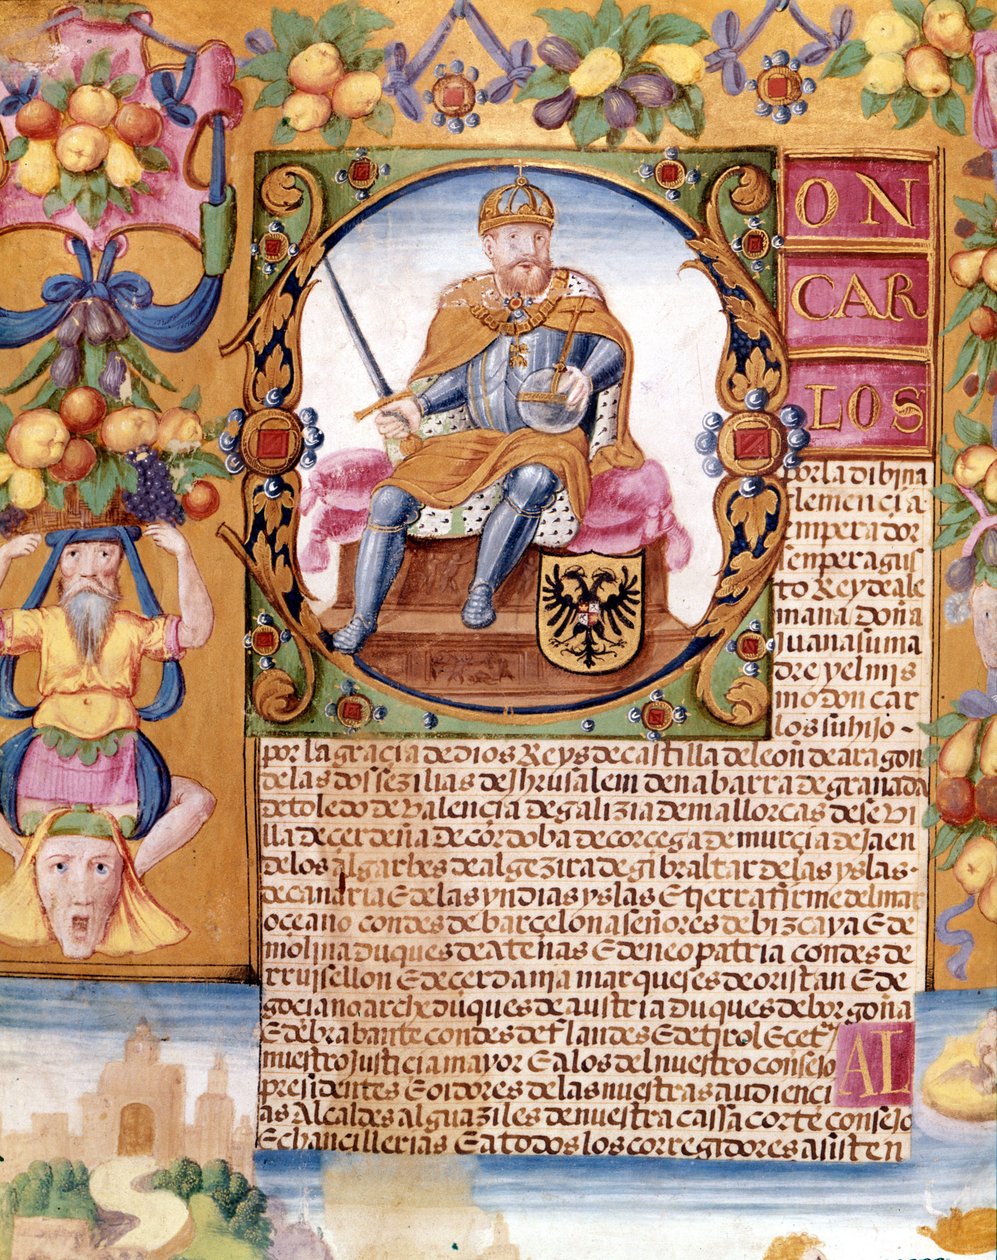 ON
CAR
LOS
por la dibina
clemençia
emperador
semper agus
to Rey de ale
mana doña
Juana su ma
dre y el mis
mo don car
los su hijo
por la graçia de dios Reys de castilla de leon de aragon
de las dos seziliias de Jhrusalem de nabarra de granada
de toledo de valençia de galizia de mallorcas de sevi
lla de cerdeña de cordoba de corcega de murçia de Jaen
de los algarbes de algezira de gibraltar de las yslas
de canaria E de las yndias yslas E tierra firme del mar
oceano condes de barçelona señores de bizcaya E de
molina duques de atenas E de neopatria condes de
rruisellon E de cerdania marqueses de oristan E de
gociano archeduques de austria duques de borgoña
E de brabante condes de flandes E de tirol Ecetr
nuestro justicia mayor E a los del nuestro consejo
presidentes E oidores de las nuestras audienci AL
as Alcaldes alguaziles de nuestra cassa corte consejo
E chancillerias E a todos los corregidores asisten